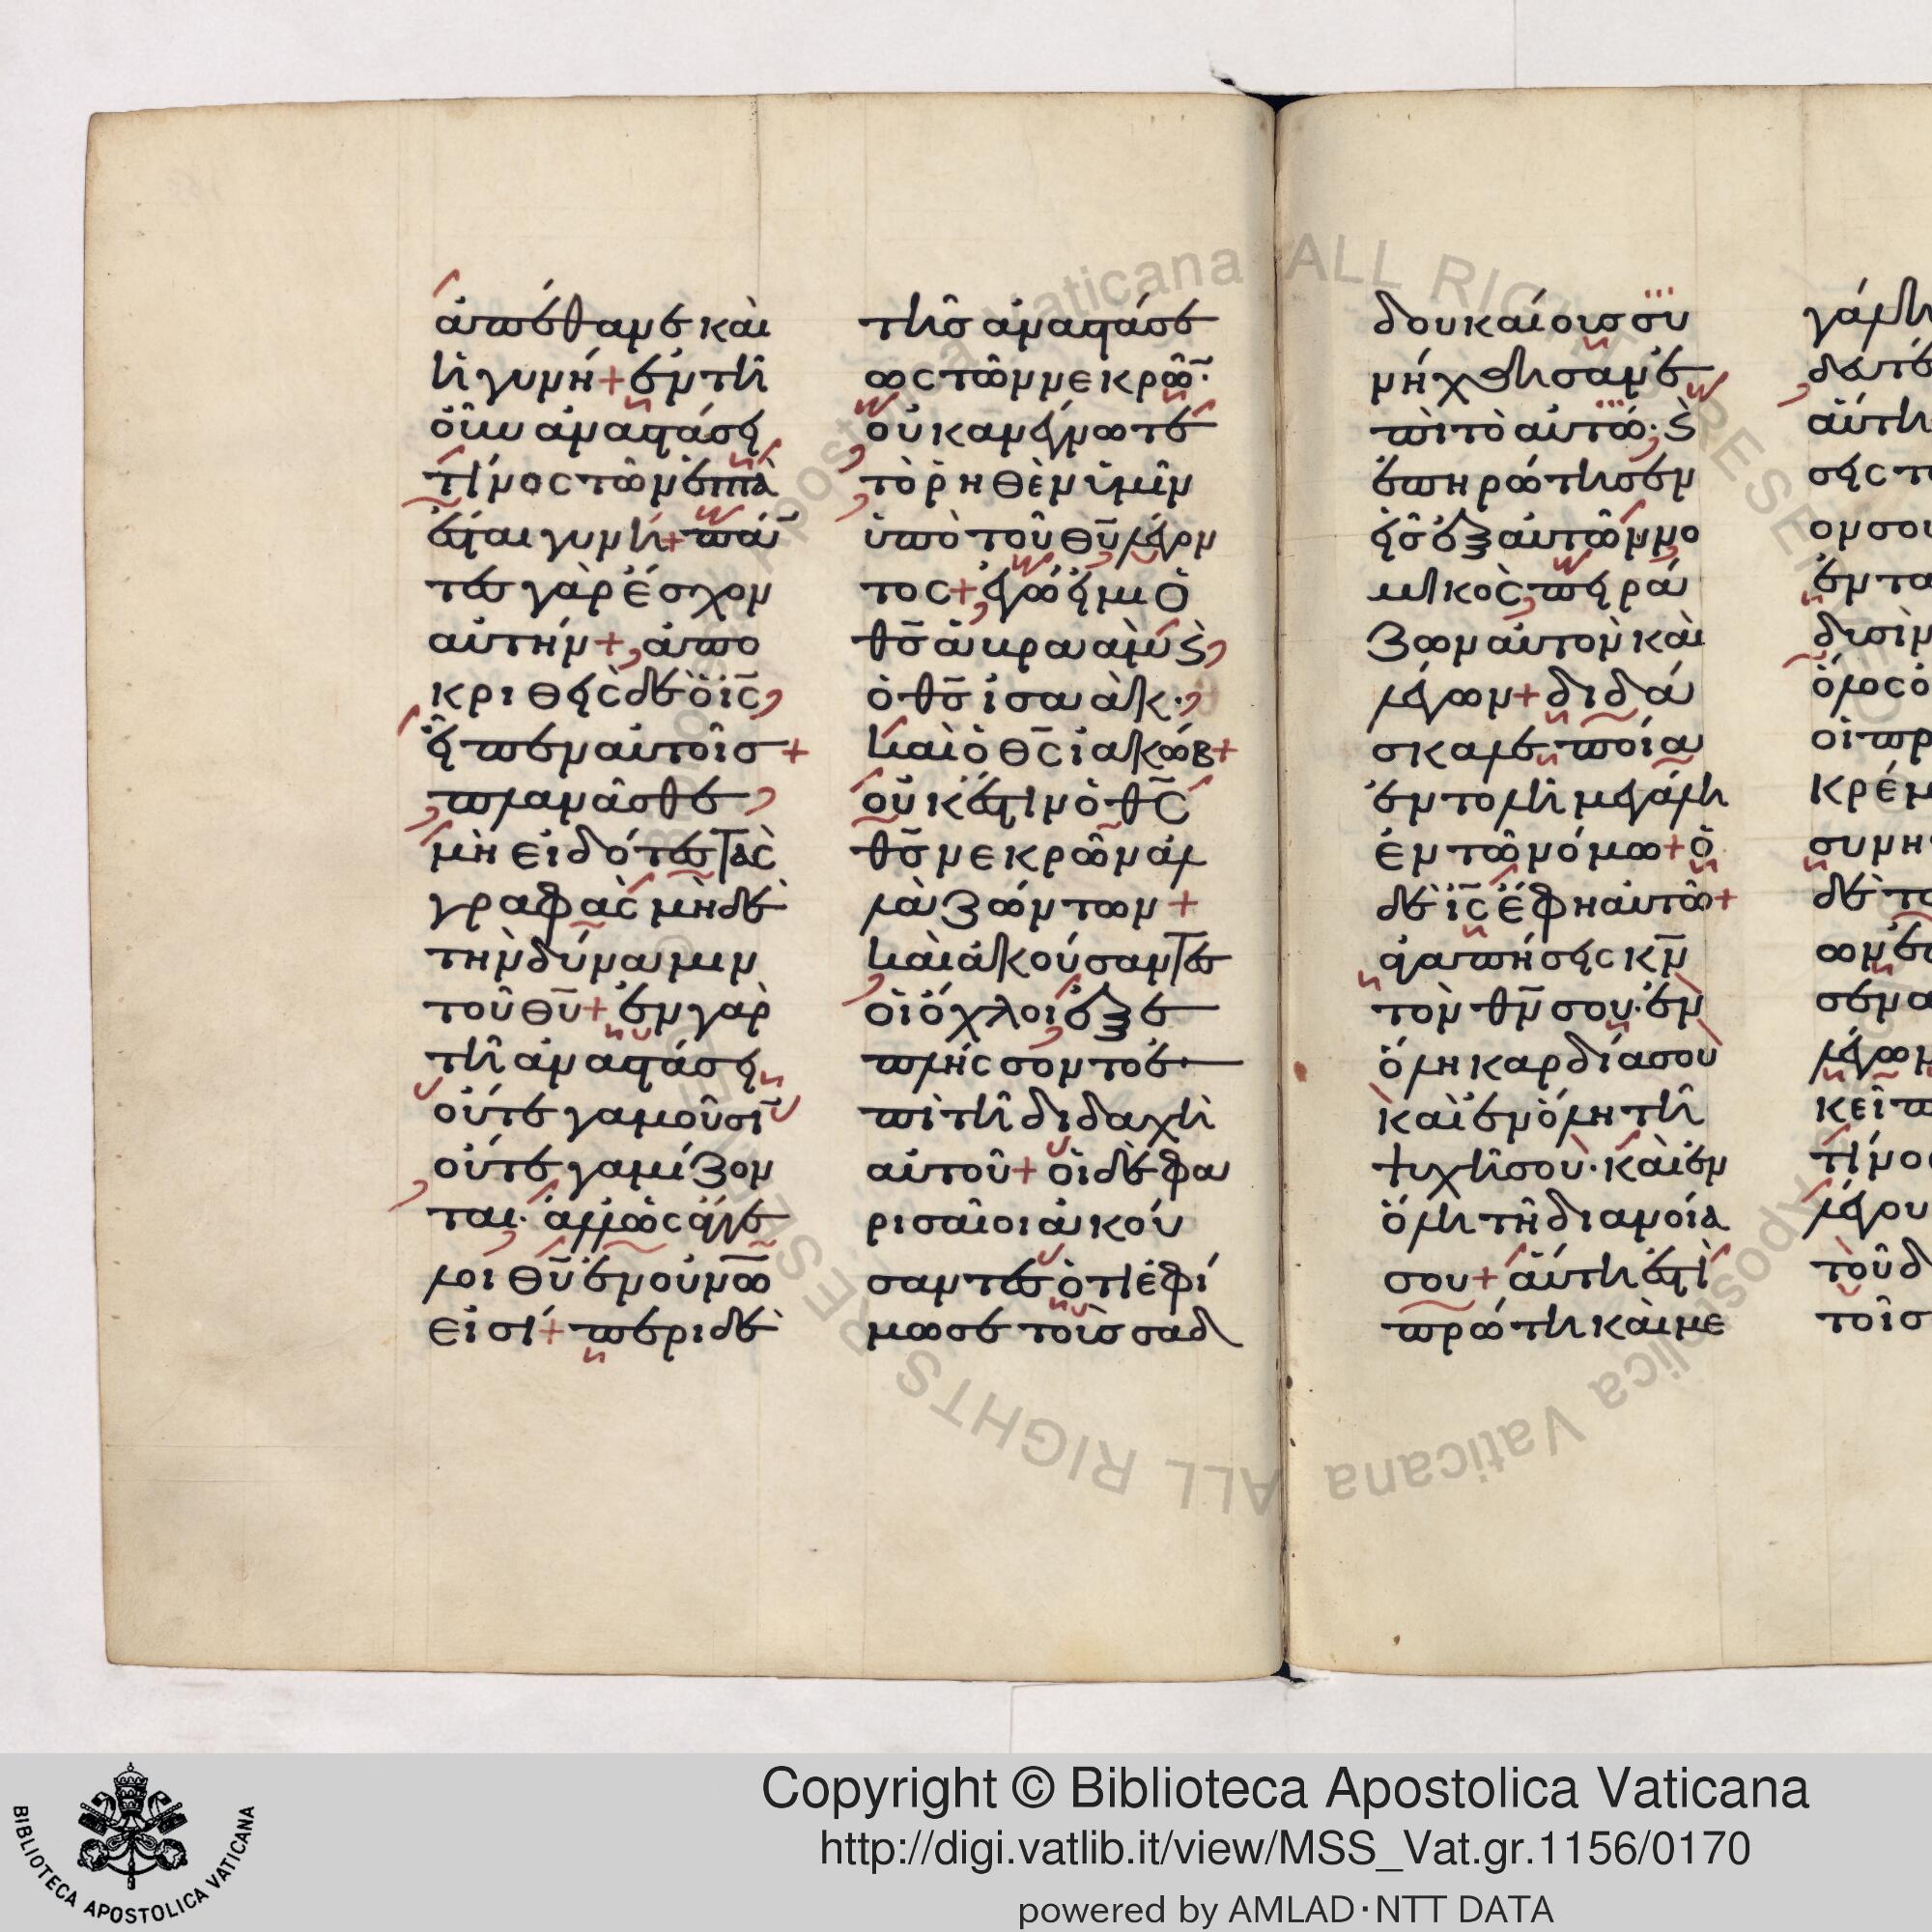 ἀπέθανε καὶ
ἡ γυνή + ἐν τῆ
οὖν ἀναστάσει
τίνος τῶν ἑπτὰ
ἔσται γυνή + πάν
τες γὰρ ἔσχον
αὐτήν + ἀπο
κριθεὶς δὲ ὁ ι̅ς̅
εἶπεν αὐτοῖς +
πλανᾶσθε
μὴ εἰδότες τὰς
γραφὰς μὴ δὲ
τὴν δύναμιν
τοῦ θ̅υ̅ + ἐν γὰρ
τῆ ἀναστάσει
οὔτε γαμοῦσῑ
οὔτε γαμίζον
ται· ἀλλ' ὡς ἄγγε
λοι θ̅υ̅ ἐν οὐν̅ω̅
εἰσί + περὶ δὲ
τῆς ἀναστάσε
ως τῶν νεκρῶ̅·
οὐκ ἀνέγνωτε
τὸ ῥηθὲν ὑμῖν
ὑπὸ τοῦ θ̅υ̅ λέγον
τος + ἐγώ εἰμι ὁ
θ̅ς̅ ἀβραὰμ ϗ
ὁ θ̅ς̅ ἰσαάκ·
καὶ ὁ θ̅ς̅ ἰακώβ +
οὐκ ἔστιν ὁ θ̅ς̅
θ̅ς̅ νεκρῶν ἀλ
λὰ ζώντων +
καὶ ἀκούσαντες
οἱ ὄχλοι ἐξε
πλήσσοντο ἐ
πὶ τῆ διδαχῆ
αὐτοῦ + οἱ δὲ φα
ρισαῖοι ἀκού
σαντες ὅτι ἐφί
μωσε τοῖς σαδ
δουκαίοις συ
νήχθησαν ἐ
πὶ τὸ αὐτό· ϗ
ἐπηρώτησεν
εἷς ἐξ αὐτῶν νο
μικὸς πειρά
ζων αὐτὸν καὶ
λέγων + διδά
σκαλε ποία
ἐντολὴ μεγάλη
ἐν τῶ νόμω + ὁ
δὲ ι̅ς̅ ἔφη αὐτῶ +
ἀγαπήσεις κ̅ν̅
τὸν θ̅ν̅ σου· ἐν
ὅλη καρδία σου
καὶ ἐν ὅλη τῆ
ψυχῆ σου· καὶ ἐν
ὅλη τῆ διανοία
σου + αὕτη ἐστὶ
πρώτη καὶ με
γάλη
αὐτη
κρέμ
Copyright © Biblioteca Apostolica Vaticana
http://digi.vatlib.it/view/MSS_Vat.gr.1156/0170
powered by AMLAD·NTT DATA
BIBLIOTECA APOSTOLICA VATICANA